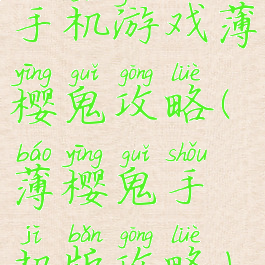 手机游戏薄
yīng guǐ gōng lüè
樱鬼攻略(
báo yīng guǐ shǒu
薄樱鬼手
jī bǎn gōng lüè
机版攻略)